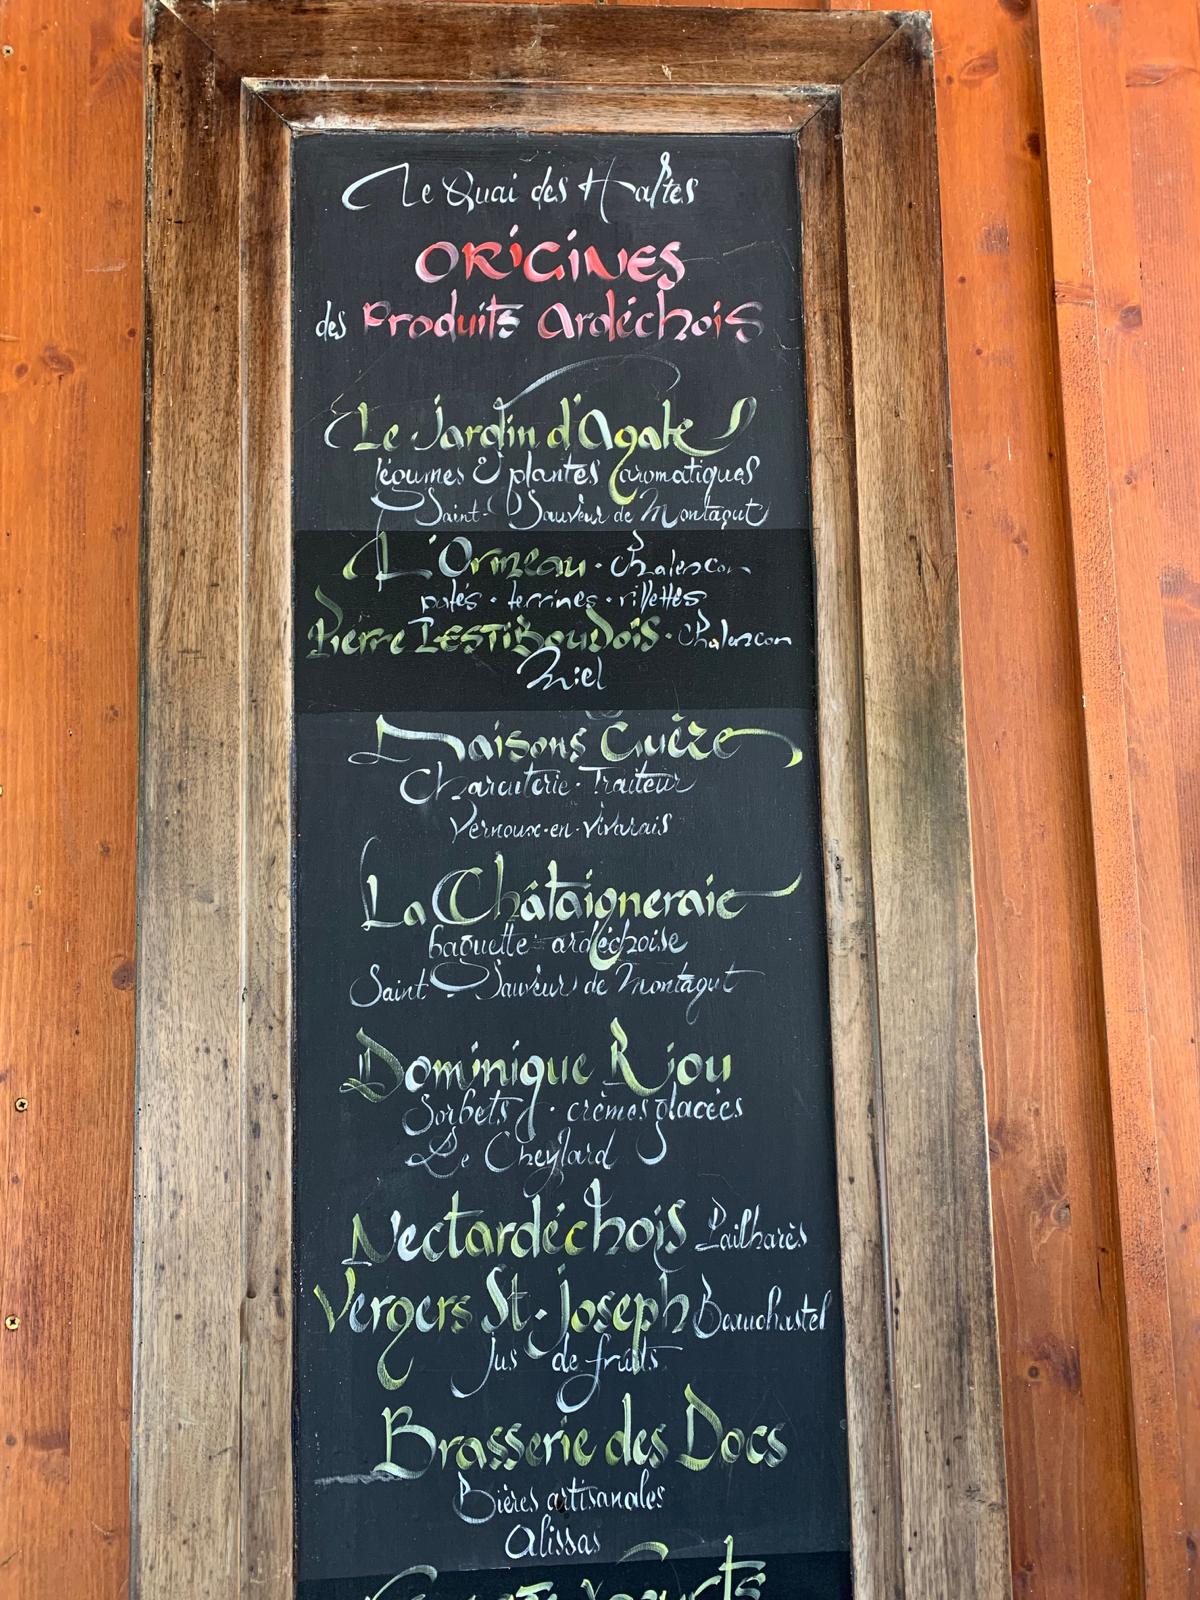 Le Quai des Haltes
ORIGINES
des Produits Ardéchois
Le Jardin d'Agate
légumes & plantes aromatiques
Saint-Sauveur de Montagut
L'Ormeau · Chalencon
patés · terrines · rillettes
Pierre LESTIBOUDOIS · Chalencon
Miel
Maisons Guèze
Charcuterie · Traiteur
Vernoux-en-vivarais
La Châtaigneraie
baguette ardéchoise
Saint-Sauveur de Montagut
Dominique Riou
Sorbets · crèmes glacées
Le Cheylard
Nectardéchois Pailharès
Vergers St-Joseph Beauchastel
Jus de fruits
Brasserie des Docs
Bières artisanales
Alissas